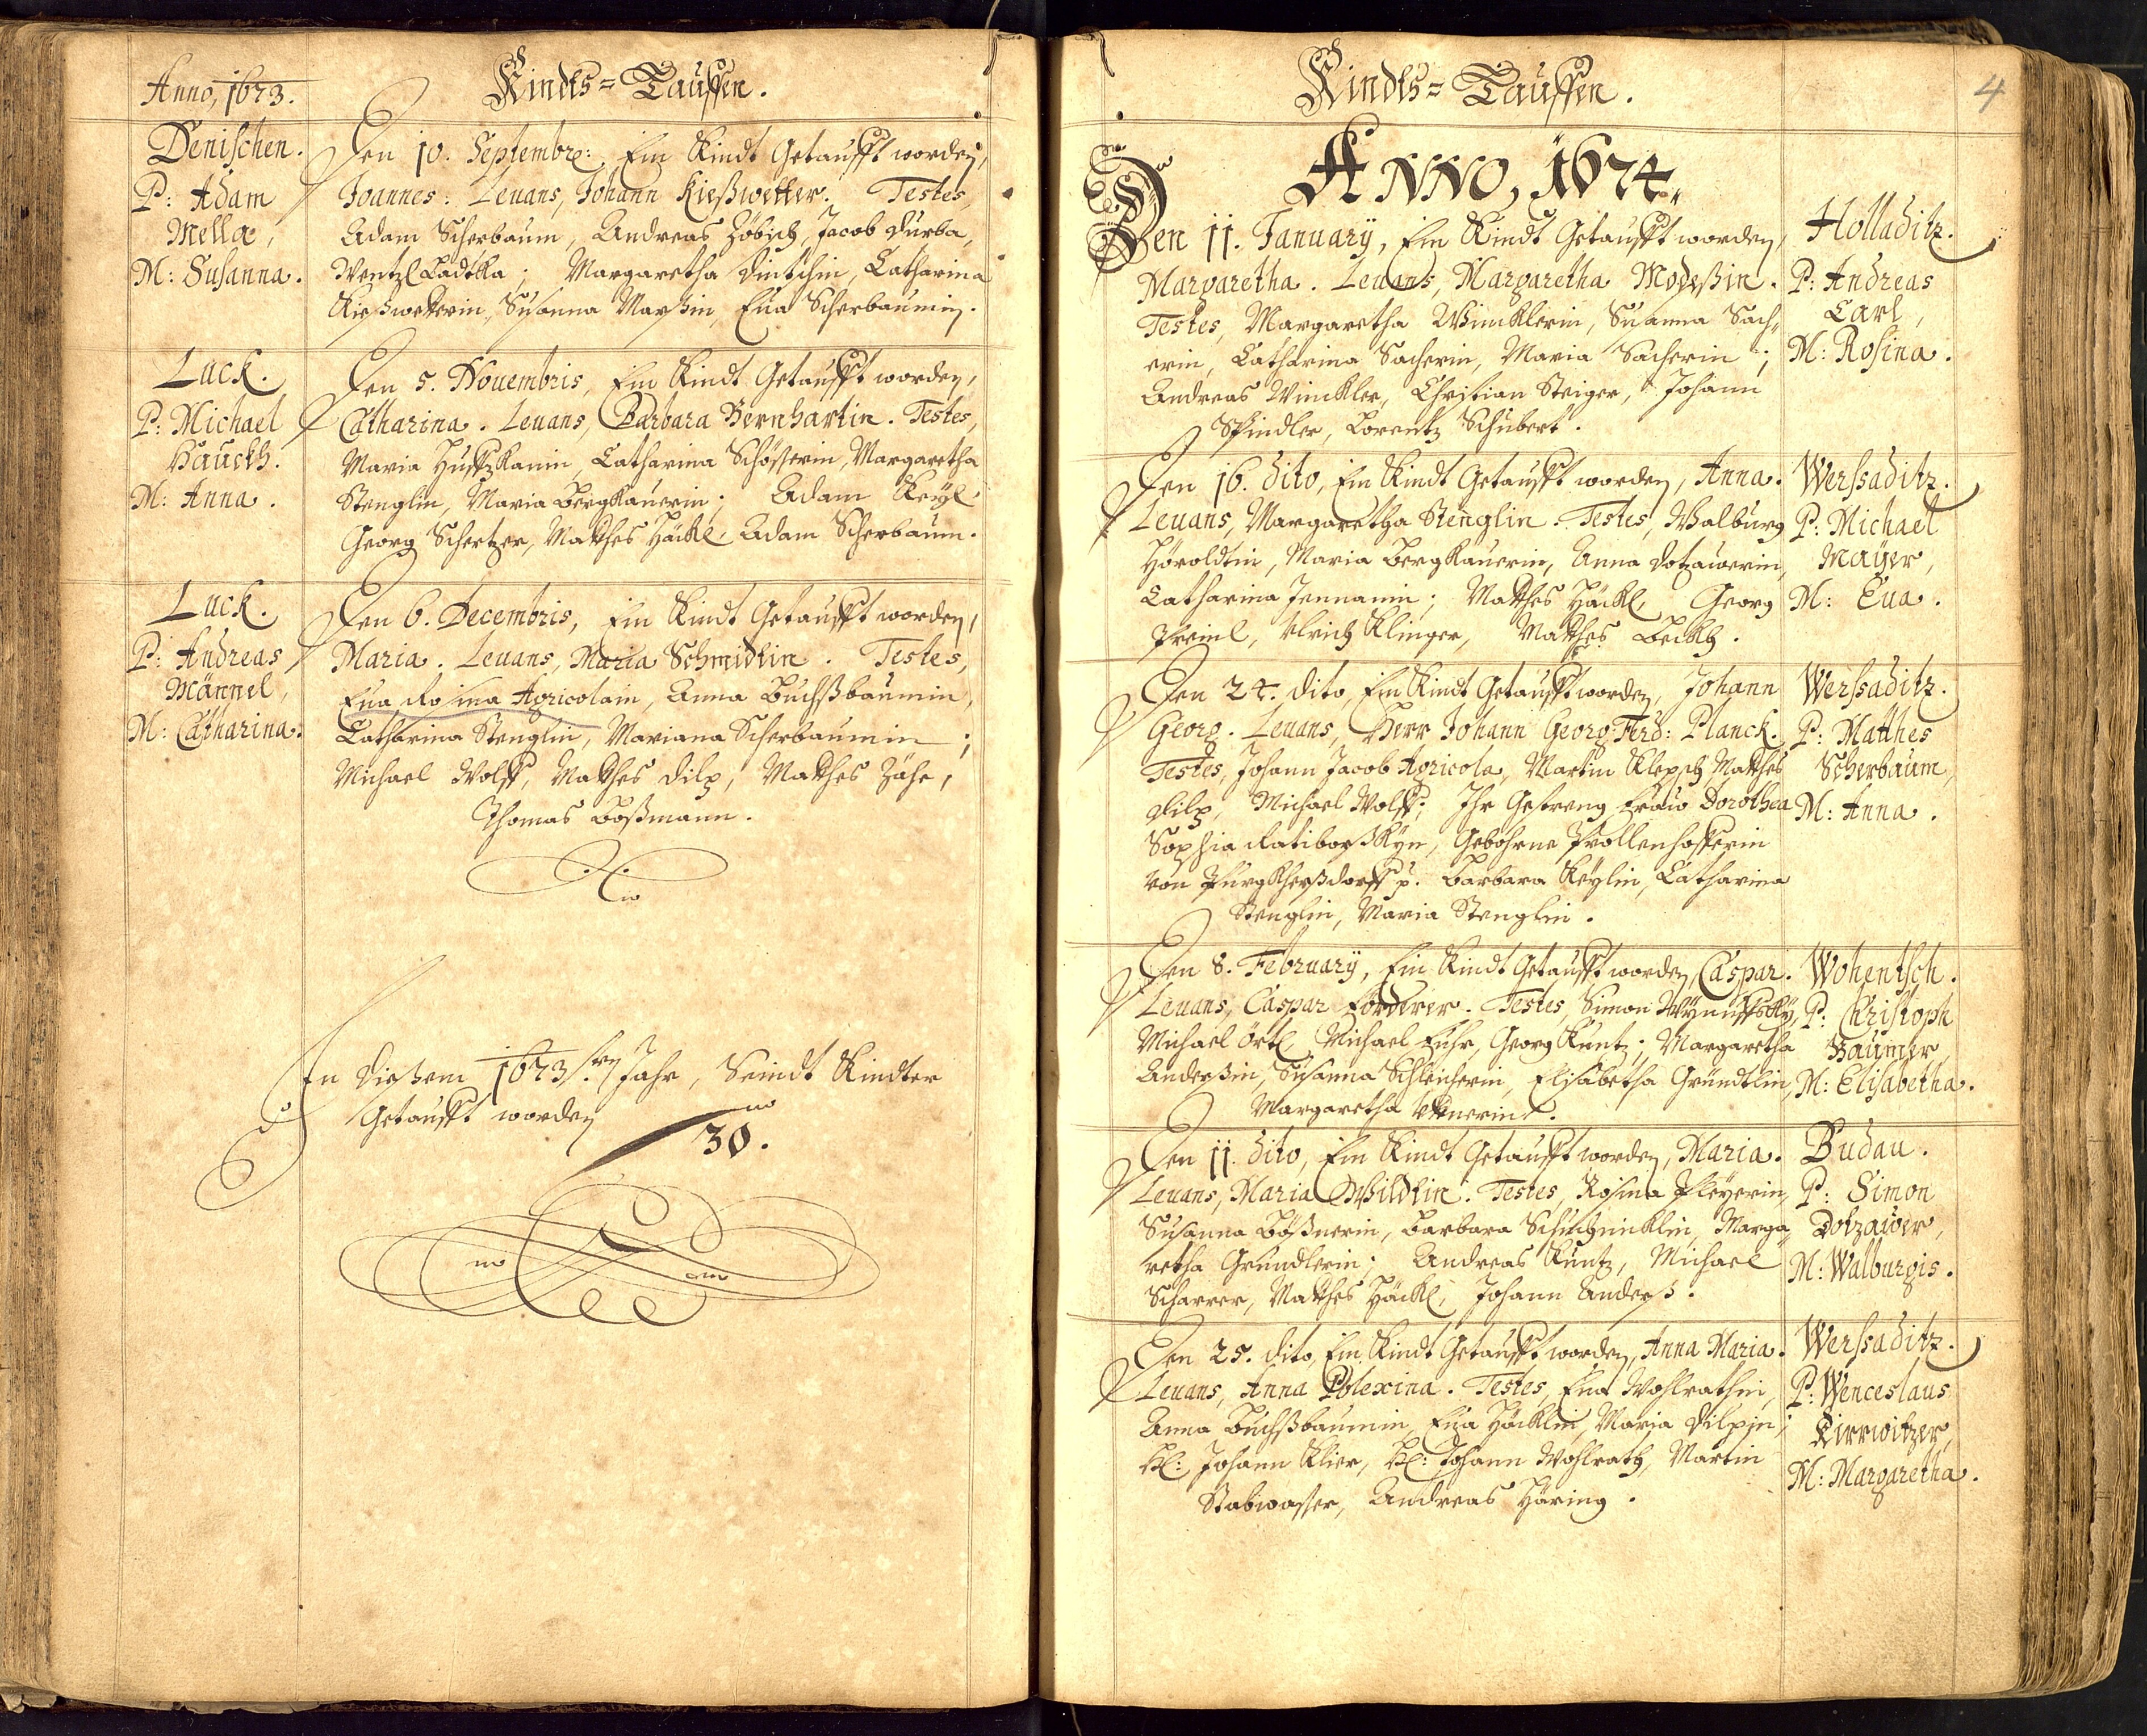 Anno, 1673.
Kindts=Tauffen.
Denischen.
P: Adam
Mella,
M: Susanna.
Den 10. Septembre: Ein Kindt Getaufft worden,
Joannes: Leuans, Johann Kießwetter. Testes,
Adam Scherbaum, Andreas Zöbisch, Jacob Durba,
Wentzl Ladtka; Margaretha Dintschin, Catharina
Kießwetterin, Susanna Marßin, Eua Scherbaumin.
Luck.
P: Michael
Hauckh.
M: Anna.
Den 5. Nouembris, Ein Kindt Getaufft worden,
Catharina. Leuans, Barbara Bernhartin. Testes,
Maria Catharina Schösserin, Margaretha
Stenglin, Maria Bergkauerin; Adam Keÿl
Georg Schertzer, Matthes Häckl, Adam Scherbaum.
Luck.
P: Andreas
Männel,
M: Catharina.
Den 6. Decembris, Ein Kindt Getaufft worden,
Maria. Leuans, Maria Schmidtin. Testes,
Eua Rosina Agricolain, Anna Buchßbaumin,
Catharina Stenglin, Mariana Scherbaumin;
Michael Wolff, Matthes Dilp, Matthes Zähe,
Thomas Boßmann.
In dießem 1673.ten Jahr, Seindt Kindter
Getaufft worden
30.
Kindts=Tauffen.
4
ANNO, 1674.
Den 11. January, Ein Kindt Getaufft worden,
Margaretha. Leuans, Margaretha Modeßin.
Testes, Margaretha Wincklerin, Suanna Sach„
erin, Catharina Sacherin, Maria Sacherin;
Andreas Winckler, Christian Steiger, Johann
Spindler, Lorentz Schubert.
Holladitz.
P: Andreas
Carl,
M: Rosina.
Den 16. dito, Ein Kindt Getaufft worden, Anna.
Leuans, Margaretha Stenglin. Testes, Walburg
Höroldtin, Maria Bergkauerin, Anna Dotzauerin,
Catharina Jennanin; Matthes Häckl, Georg
Preinl, Ulrich Klinger, Matthes Beckh.
Werssaditz.
P: Michael
Mayer,
M: Eua.
Den 24. dito, Ein Kindt Getaufft worden, Johann
Georg. Leuans, Herr Johann Georg Ferd: Planck.
Testes, Johann Jacob Agricola, Martin Klepsch, Matthes
Dilp, Michael Wolff; Ihr Gestreng Frauw Dorothea
Sophia Ratiborßkyn, Gebohrne Prollenhofferin
von Purgkherßdorff p. Barbara Keÿlin, Catharina
Stenglin, Maria Stenglin.
Werssaditz.
P: Matthes
Scherbaum,
M: Anna.
Den 8. February, Ein Kindt Getaufft worden, Caspar.
Leuans, Caspar Förderer. Testes, Simon
Michael Örtl, Michael Fuhr, Georg Kuntz; Margaretha
Anderßin, Susanna Schleicherin, Elisabetha Gründtlin,
Margaretha
Wohentsch.
P: Christoph
Baumer,
M: Elisabetha.
Den 11. dito, Ein Kindt Getaufft worden, Maria.
Leuans, Maria Wildtin. Testes, Rosina Pleyerin,
Susanna Boßnerin, Barbara Marga„
retha Gründlerin; Andreas Kuntz, Michael
Scharrer, Matthes Häckl, Johann Anderß.
Budau.
P: Simon
Dotzauer,
M: Walburgis.
Den 25. dito, Ein Kindt Getaufft worden, Anna Maria.
Leuans, Anna Polexina. Testes, Eua Wohlrathin,
Anna Buchßbaumin, Eua Häcklin, Maria Dilpin;
H: Johann Klier, H: Johann Wohlrath, Martin
Stabwasser, Andreas Häring.
Werssaditz.
P: Wenceslaus
Kirrwitzer,
M: Margaretha.